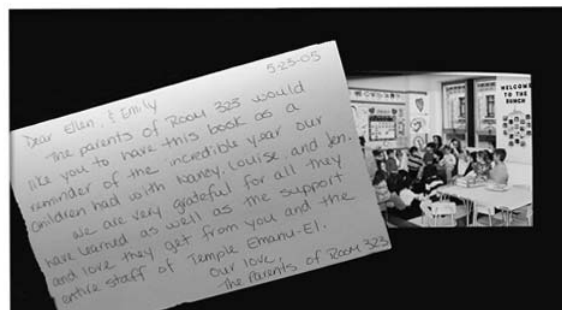 5-23-05
Dear Ellen, & Emily
The parents of Room 323 would
like you to have this book as a
reminder of the incredible year our
children had with Nancy, Louise, and Jen.
We are very grateful for all they
have learned as well as the support
and love they get from you and the
entire staff of Temple Emanu-El.
Our love,
The Parents of Room 323
WELCOME
TO THE
BUNCH